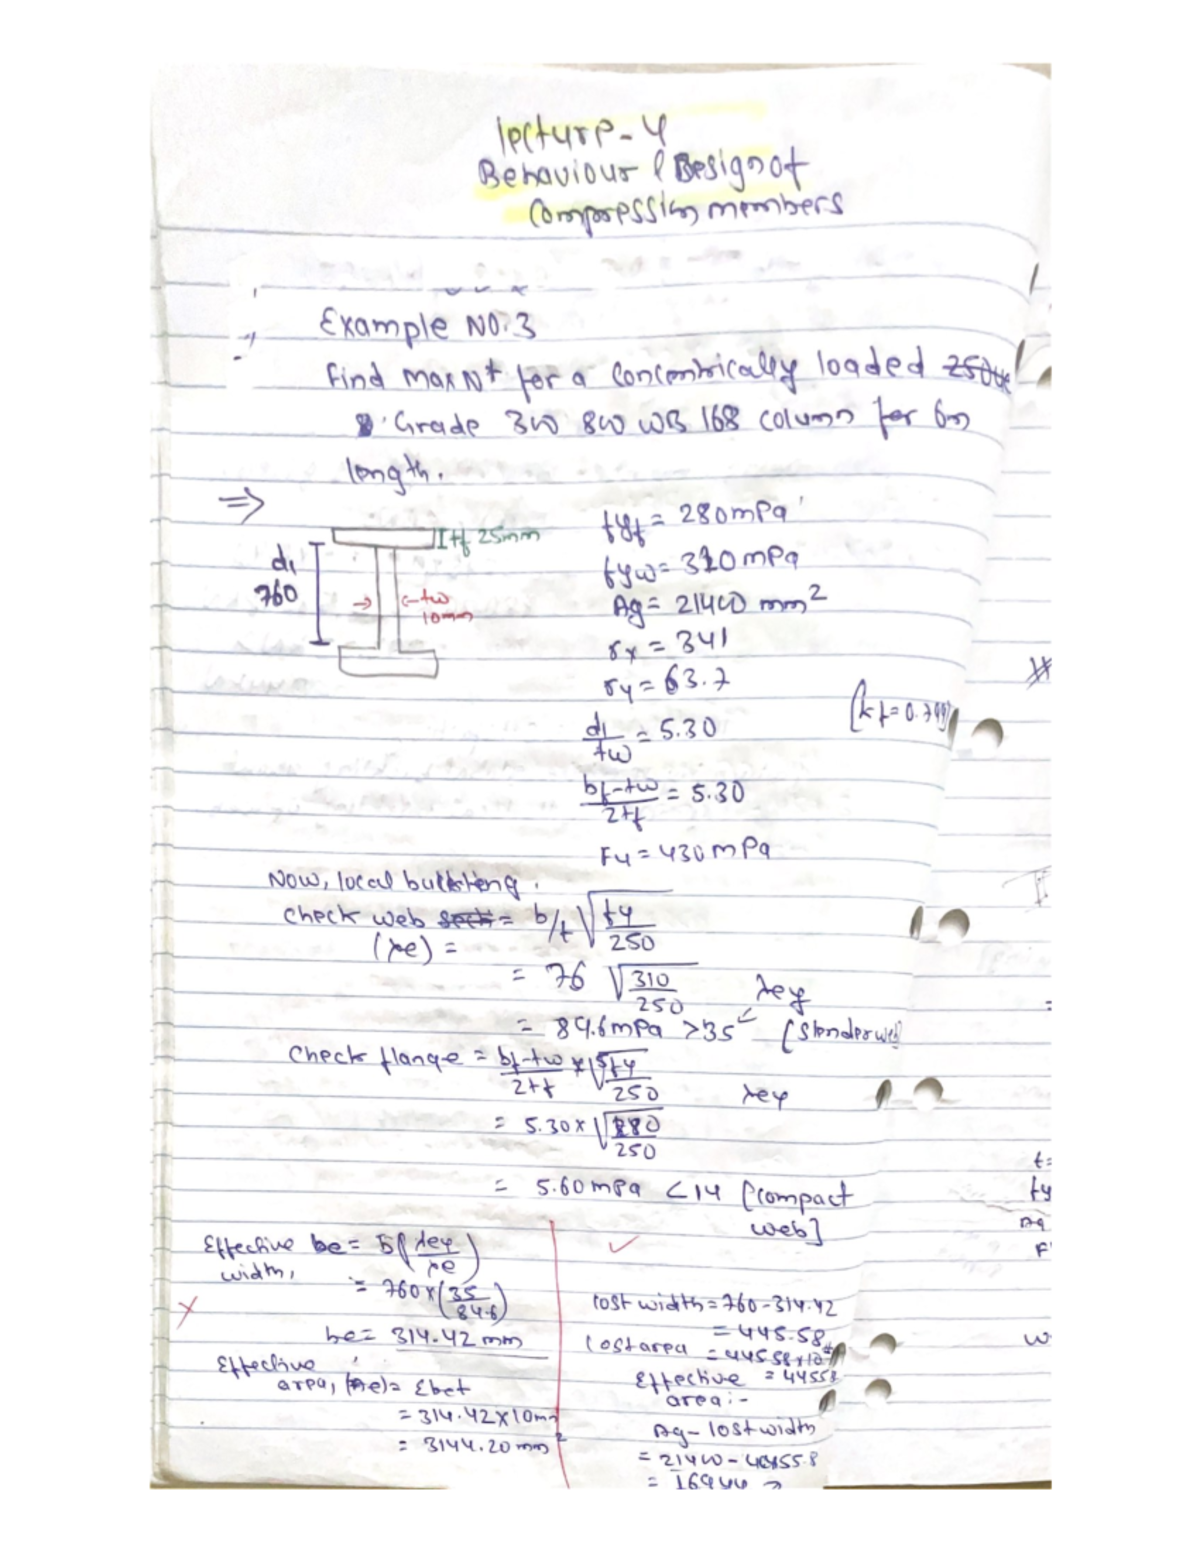 lecture-4
Behaviour & Design of
Compression members
Example NO.3
Find Max N* for a Concentrically loaded
Grade 300 800 WB 168 column for 6m
length.
⇒
d1
760
tf 25mm
tw
10mm
fyf = 280mPa
fyw = 310mPa
Ag = 21400 mm²
rx = 341
ry = 63.7
(kf=0.799)
d1/tw = 5.30
bf-tw/2tf = 5.30
Fu = 430mPa
Now, local buckling.
Check web = b/t √fy/250
(λe) =
= 76 √310/250
λey
= 84.6mPa >35 [Slender web]
Check flange = bf-tw/2tf × √fy/250
λey
= 5.30 × √280/250
= 5.60mPa <14 [compact
web]
Effective be = b(λey/λe)
width,
= 760×(35/84.6)
be = 314.42 mm
Effective
area, (Ae) = Ebet
= 314.42×10mm
= 3144.20 mm²
lost width = 760-314.42
= 445.58
lost area = 445.58×10
= 4455.8
Effective
area:-
Ag - lost width
= 21400 - 4455.8
= 16944.2